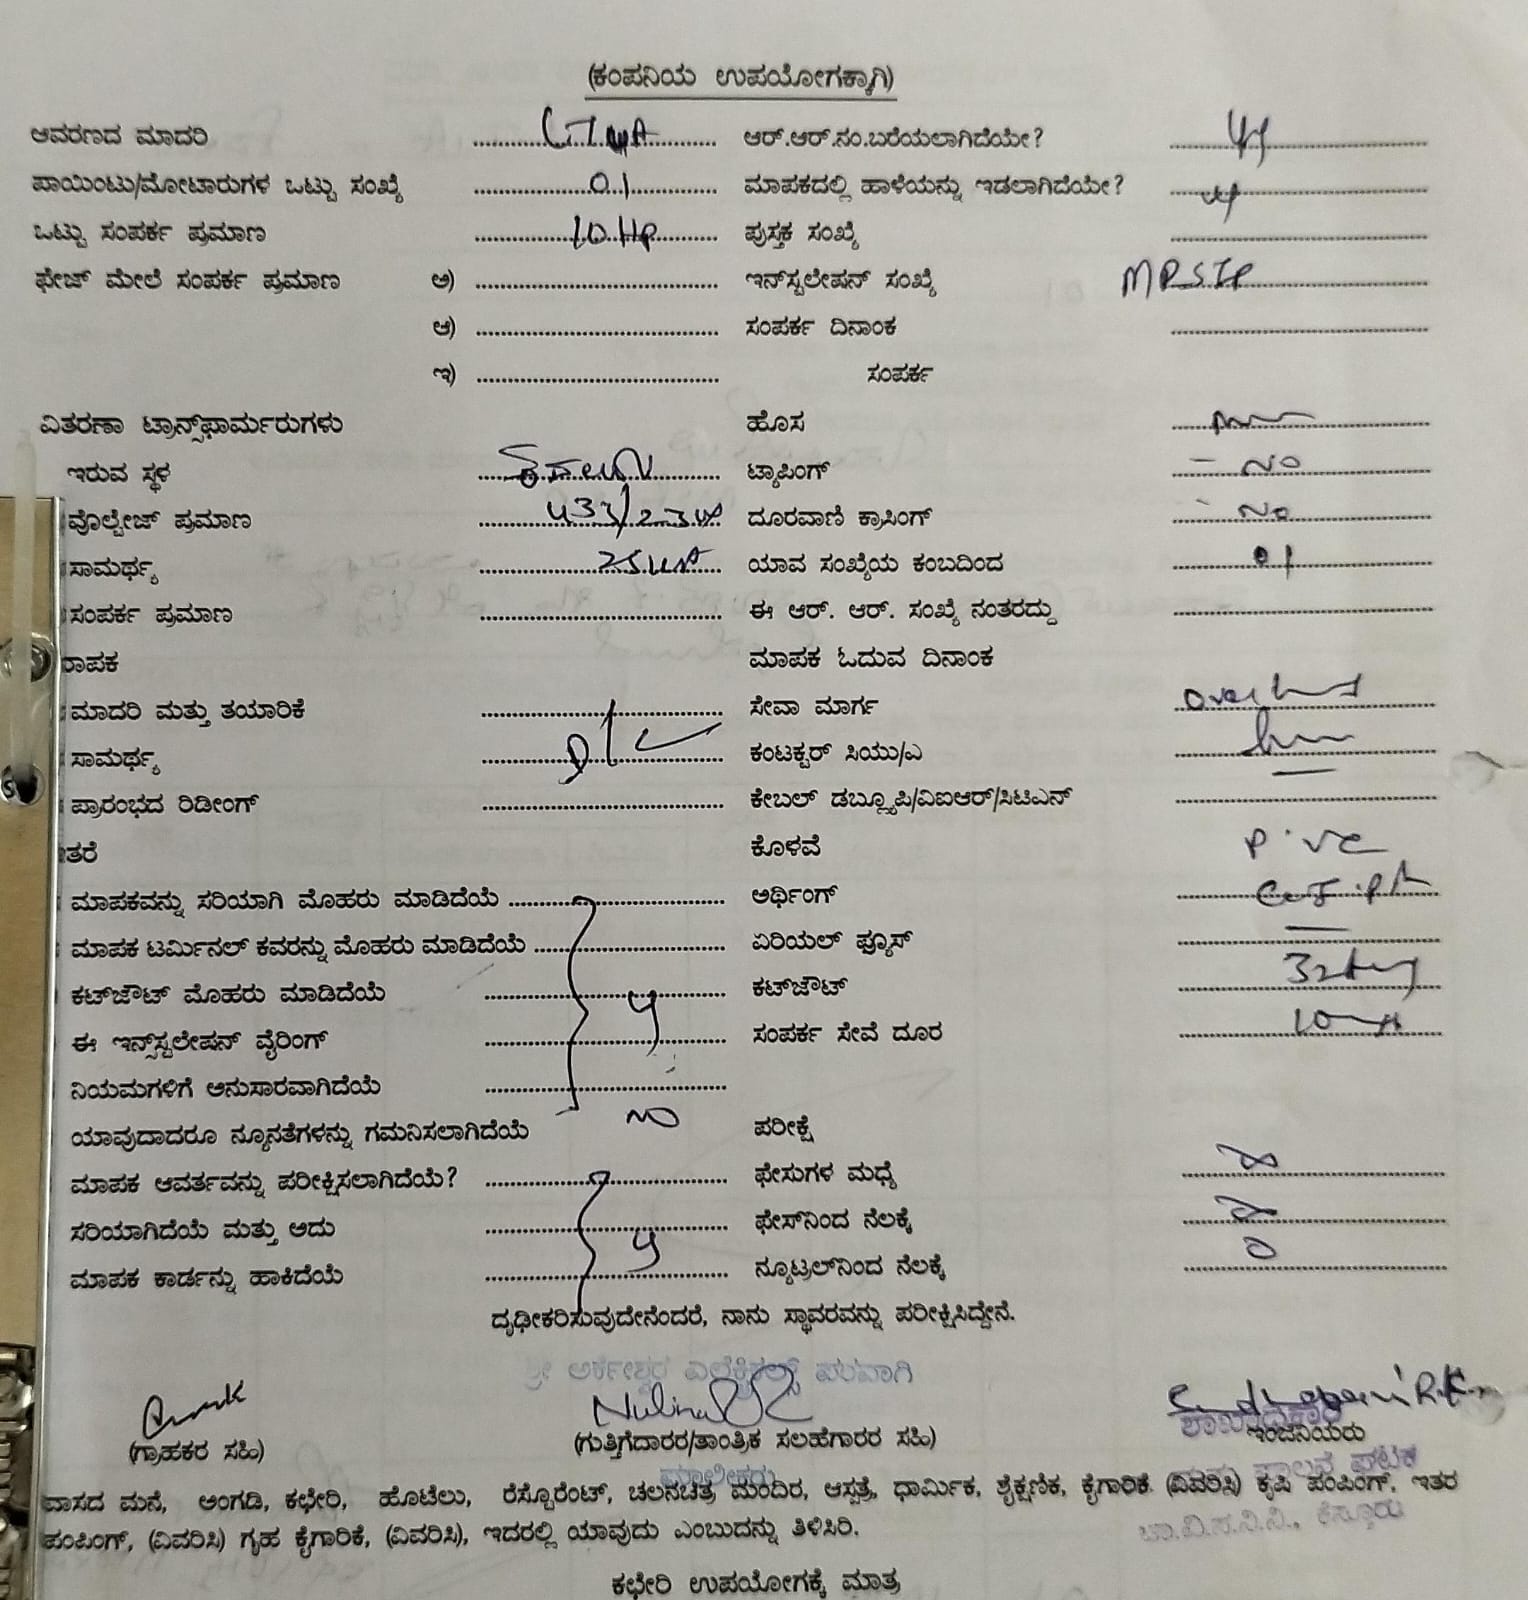 (ಕಂಪನಿಯ ಉಪಯೋಗಕ್ಕಾಗಿ)
ಆವರಣದ ಮಾದರಿ ಆರ್.ಆರ್.ನಂ.ಬರೆಯಲಾಗಿದೆಯೇ?
ಪಾಯಿಂಟು/ಮೋಟಾರುಗಳ ಒಟ್ಟು ಸಂಖ್ಯೆ 01 ಮಾಪಕದಲ್ಲಿ ಹಾಳೆಯನ್ನು ಇಡಲಾಗಿದೆಯೇ?
ಒಟ್ಟು ಸಂಪರ್ಕ ಪ್ರಮಾಣ 10 HP ಪುಸ್ತಕ ಸಂಖ್ಯೆ
ಫೇಜ್ ಮೇಲೆ ಸಂಪರ್ಕ ಪ್ರಮಾಣ ಅ) ಇನ್‌ಸ್ಟಲೇಷನ್ ಸಂಖ್ಯೆ
ಆ) ಸಂಪರ್ಕ ದಿನಾಂಕ
ಇ) ಸಂಪರ್ಕ
ವಿತರಣಾ ಟ್ರಾನ್ಸ್‌ಫಾರ್ಮರುಗಳು ಹೊಸ
ಇರುವ ಸ್ಥಳ ಟ್ಯಾಪಿಂಗ್ - NO
ವೊಲ್ಟೇಜ್ ಪ್ರಮಾಣ ದೂರವಾಣಿ ಕ್ರಾಸಿಂಗ್ - NO
ಸಾಮರ್ಥ್ಯ ಯಾವ ಸಂಖ್ಯೆಯ ಕಂಬದಿಂದ 01
ಸಂಪರ್ಕ ಪ್ರಮಾಣ ಈ ಆರ್. ಆರ್. ಸಂಖ್ಯೆ ನಂತರದ್ದು
ಮಾಪಕ ಓದುವ ದಿನಾಂಕ
ಮಾದರಿ ಮತ್ತು ತಯಾರಿಕೆ ಸೇವಾ ಮಾರ್ಗ
ಸಾಮರ್ಥ್ಯ ಕಂಟಕ್ಟರ್ ಸಿಯು/ಎ
ಪ್ರಾರಂಭದ ರಿಡೀಂಗ್ ಕೇಬಲ್ ಡಬ್ಲ್ಯೂಪಿ/ವಿಐಆರ್/ಸಿಟಿಎನ್
ತರೆ ಕೊಳವೆ P.VC
ಮಾಪಕವನ್ನು ಸರಿಯಾಗಿ ಮೊಹರು ಮಾಡಿದೆಯೆ ಅರ್ಥಿಂಗ್
ಮಾಪಕ ಟರ್ಮಿನಲ್ ಕವರನ್ನು ಮೊಹರು ಮಾಡಿದೆಯೆ ಏರಿಯಲ್ ಫ್ಯೂಸ್
ಕಟ್‌ಔಟ್ ಮೊಹರು ಮಾಡಿದೆಯೆ y ಕಟ್‌ಔಟ್
ಈ ಇನ್ಸ್‌ಸ್ಟಲೇಷನ್ ವೈರಿಂಗ್ ಸಂಪರ್ಕ ಸೇವೆ ದೂರ
ನಿಯಮಗಳಿಗೆ ಅನುಸಾರವಾಗಿದೆಯೆ
ಯಾವುದಾದರೂ ನ್ಯೂನತೆಗಳನ್ನು ಗಮನಿಸಲಾಗಿದೆಯೆ NO ಪರೀಕ್ಷೆ
ಮಾಪಕ ಆವರ್ತವನ್ನು ಪರೀಕ್ಷಿಸಲಾಗಿದೆಯೆ? ಫೇಸುಗಳ ಮಧ್ಯೆ
ಸರಿಯಾಗಿದೆಯೆ ಮತ್ತು ಅದು y ಫೇಸ್‌ನಿಂದ ನೆಲಕ್ಕೆ
ಮಾಪಕ ಕಾರ್ಡನ್ನು ಹಾಕಿದೆಯೆ ನ್ಯೂಟ್ರಲ್‌ನಿಂದ ನೆಲಕ್ಕೆ
ದೃಢೀಕರಿಸುವುದೇನೆಂದರೆ, ನಾನು ಸ್ಥಾವರವನ್ನು ಪರೀಕ್ಷಿಸಿದ್ದೇನೆ.
ಶ್ರೀ ಅರ್ಕೇಶ್ವರ ಎಲೆಕ್ಟ್ರಿಕಲ್ಸ್ ಪರವಾಗಿ
(ಗ್ರಾಹಕರ ಸಹಿ) (ಗುತ್ತಿಗೆದಾರರ/ತಾಂತ್ರಿಕ ಸಲಹೆಗಾರರ ಸಹಿ) ಇಂಜಿನಿಯರು
ಶಾಖಾಧಿಕಾರಿ
ಮಾಲೀಕರು
ವಾಸದ ಮನೆ, ಅಂಗಡಿ, ಕಛೇರಿ, ಹೊಟೆಲು, ರೆಸ್ಟೊರೆಂಟ್, ಚಲನಚಿತ್ರ ಮಂದಿರ, ಆಸ್ಪತ್ರೆ, ಧಾರ್ಮಿಕ, ಶೈಕ್ಷಣಿಕ, ಕೈಗಾರಿಕೆ (ವಿವರಿಸಿ) ಕೃಷಿ ಪಂಪಿಂಗ್, ಇತರ
ಪಂಪಿಂಗ್, (ವಿವರಿಸಿ) ಗೃಹ ಕೈಗಾರಿಕೆ, (ವಿವರಿಸಿ), ಇದರಲ್ಲಿ ಯಾವುದು ಎಂಬುದನ್ನು ತಿಳಿಸಿರಿ.
ಕಛೇರಿ ಉಪಯೋಗಕ್ಕೆ ಮಾತ್ರ